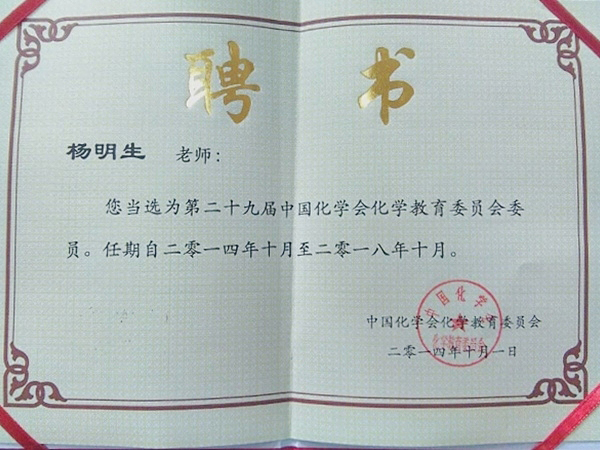 聘 书
杨明生 老师：
您当选为第二十九届中国化学会化学教育委员会委
员。任期自二零一四年十月至二零一八年十月。
中国化学会
中国化学会化学教育委员会
二零一四年十月一日